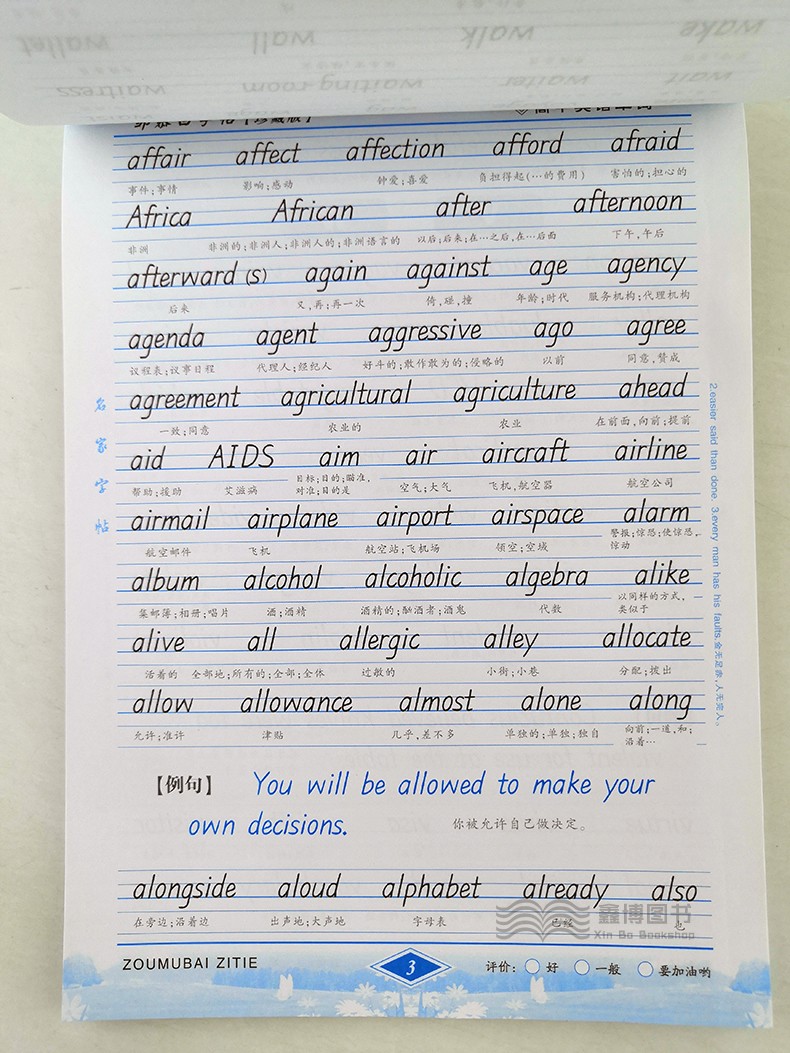 wake walk wall wallet
wait waiter waiting-room waitress
【珍藏版】
affair affect affection afford afraid
事件;事情 影响;感动 钟爱;喜爱 负担得起(…的费用) 害怕的;担心的
Africa African after afternoon
非洲 非洲的;非洲人;非洲人的;非洲语言的 以后;后来;在…之后,在…后面 下午,午后
afterward (s) again against age agency
后来 又,再;再一次 倚,碰,撞 年龄;时代 服务机构;代理机构
agenda agent aggressive ago agree
议程表;议事日程 代理人;经纪人 好斗的;敢作敢为的;侵略的 以前 同意,赞成
agreement agricultural agriculture ahead
一致;同意 农业的 农业 在前面,向前;提前
aid AIDS aim air aircraft airline
帮助;援助 艾滋病 目标;目的;瞄准, 空气;大气 飞机,航空器 航空公司
对准;目的是
airmail airplane airport airspace alarm
航空邮件 飞机 航空站;飞机场 领空;空域 警报;惊恐;使惊恐,
惊动
album alcohol alcoholic algebra alike
集邮簿;相册;唱片 酒;酒精 酒精的;酗酒者;酒鬼 代数 以同样的方式,
类似于
alive all allergic alley allocate
活着的 全部地;所有的;全部;全体 过敏的 小街;小巷 分配;拨出
allow allowance almost alone along
允许;准许 津贴 几乎,差不多 单独的;单独;独自 向前;一道,和;
沿着…
【例句】 You will be allowed to make your
own decisions. 你被允许自己做决定。
alongside aloud alphabet already also
在旁边;沿着边 出声地;大声地 字母表 已经 也
名家字帖
2.easier said than done. 3.every man has his faults.金无足赤,人无完人。
鑫博图书
Xin Bo Bookshop
ZOUMUBAI ZITIE 3 评价: 好 一般 要加油哟